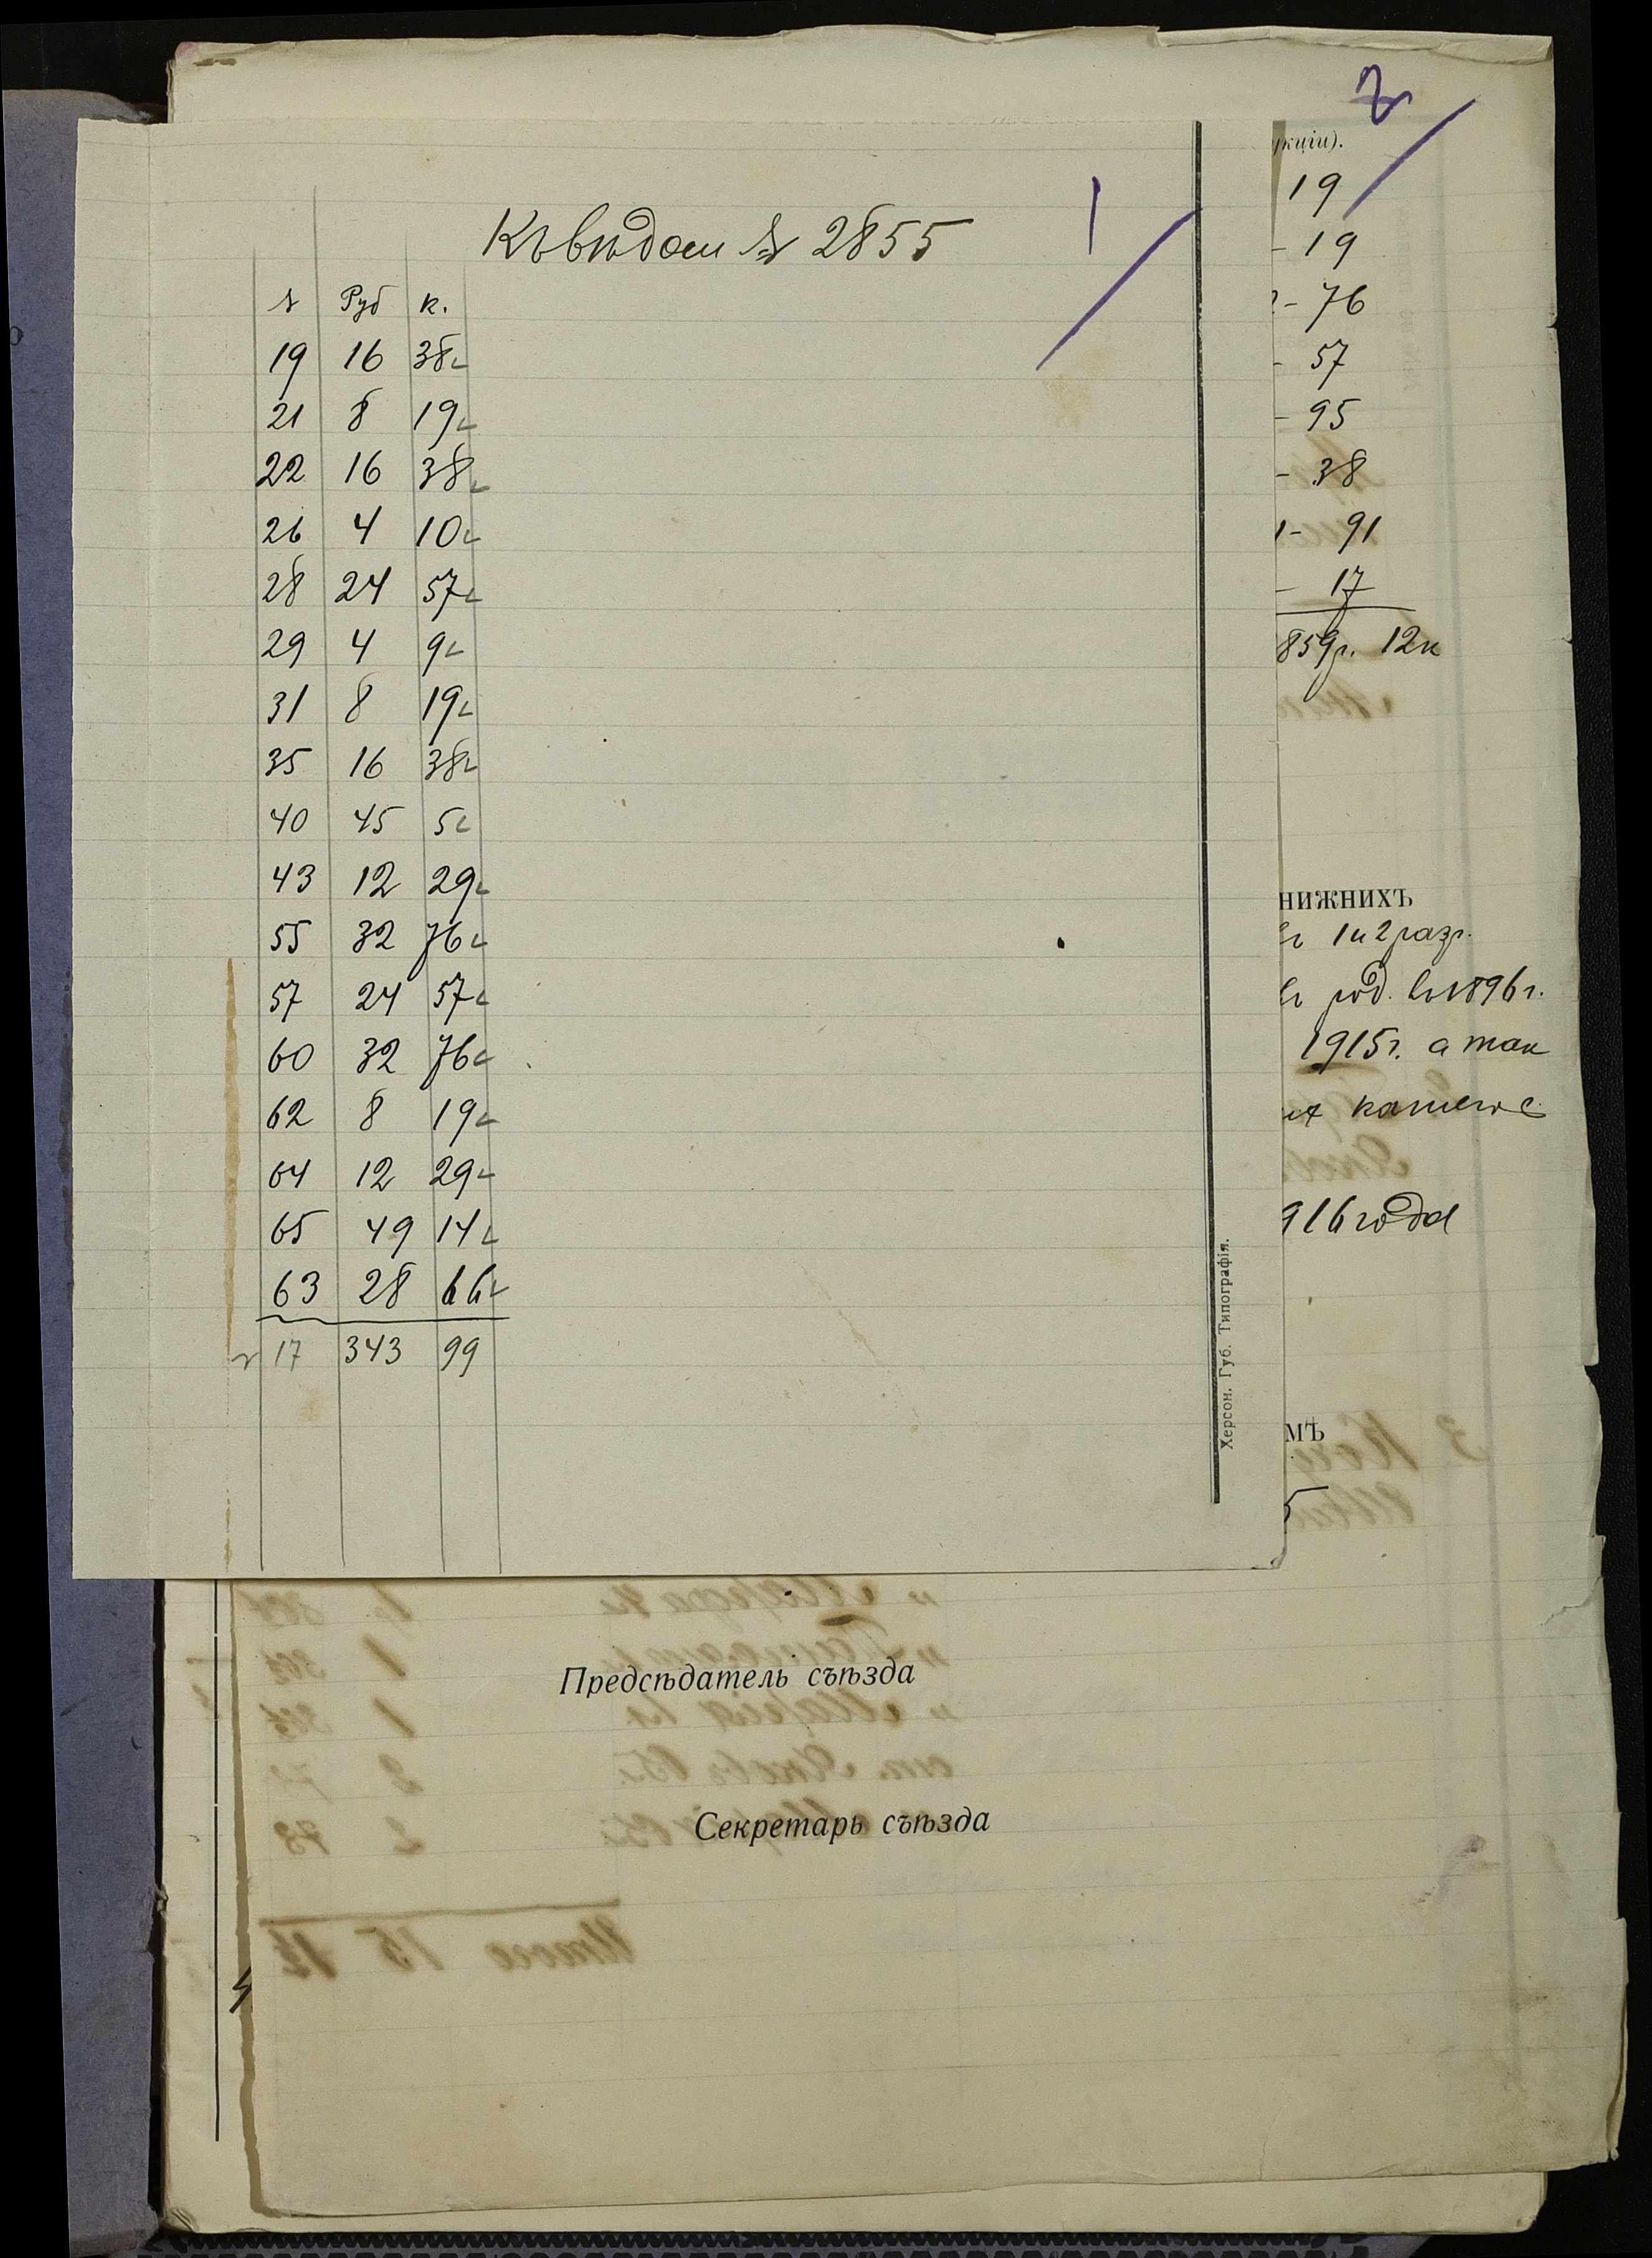 2
1
Къ вѣдом № 2855
№ Руб к.
19 16 38
21 8 19
22 16 38
26 4 10
28 24 57
29 4 9
31 8 19
35 16 38
40 45 5
43 12 29
55 32 76
57 24 57
60 32 76
62 8 19
64 12 29
65 49 14
63 28 66
17 343 99
Херсон. Губ. Типографія.
укціи).
19
- 19
- 76
- 57
- 95
- 38
- 91
- 17
859р. 12к
нижнихъ
1 и 2 разр.
род. въ 1896 г.
1915г. а так
916 года
мъ
Предсѣдатель съѣзда
Секретарь съѣзда